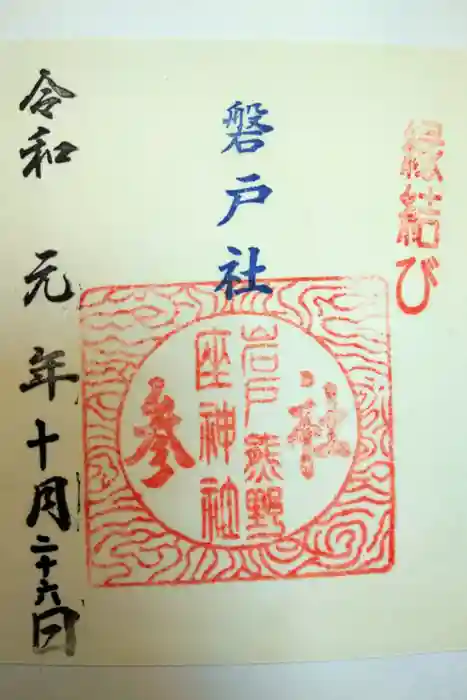 縁結び
磐戸社
社
岩戸熊野
座神社
参
令和元年十月二十六日